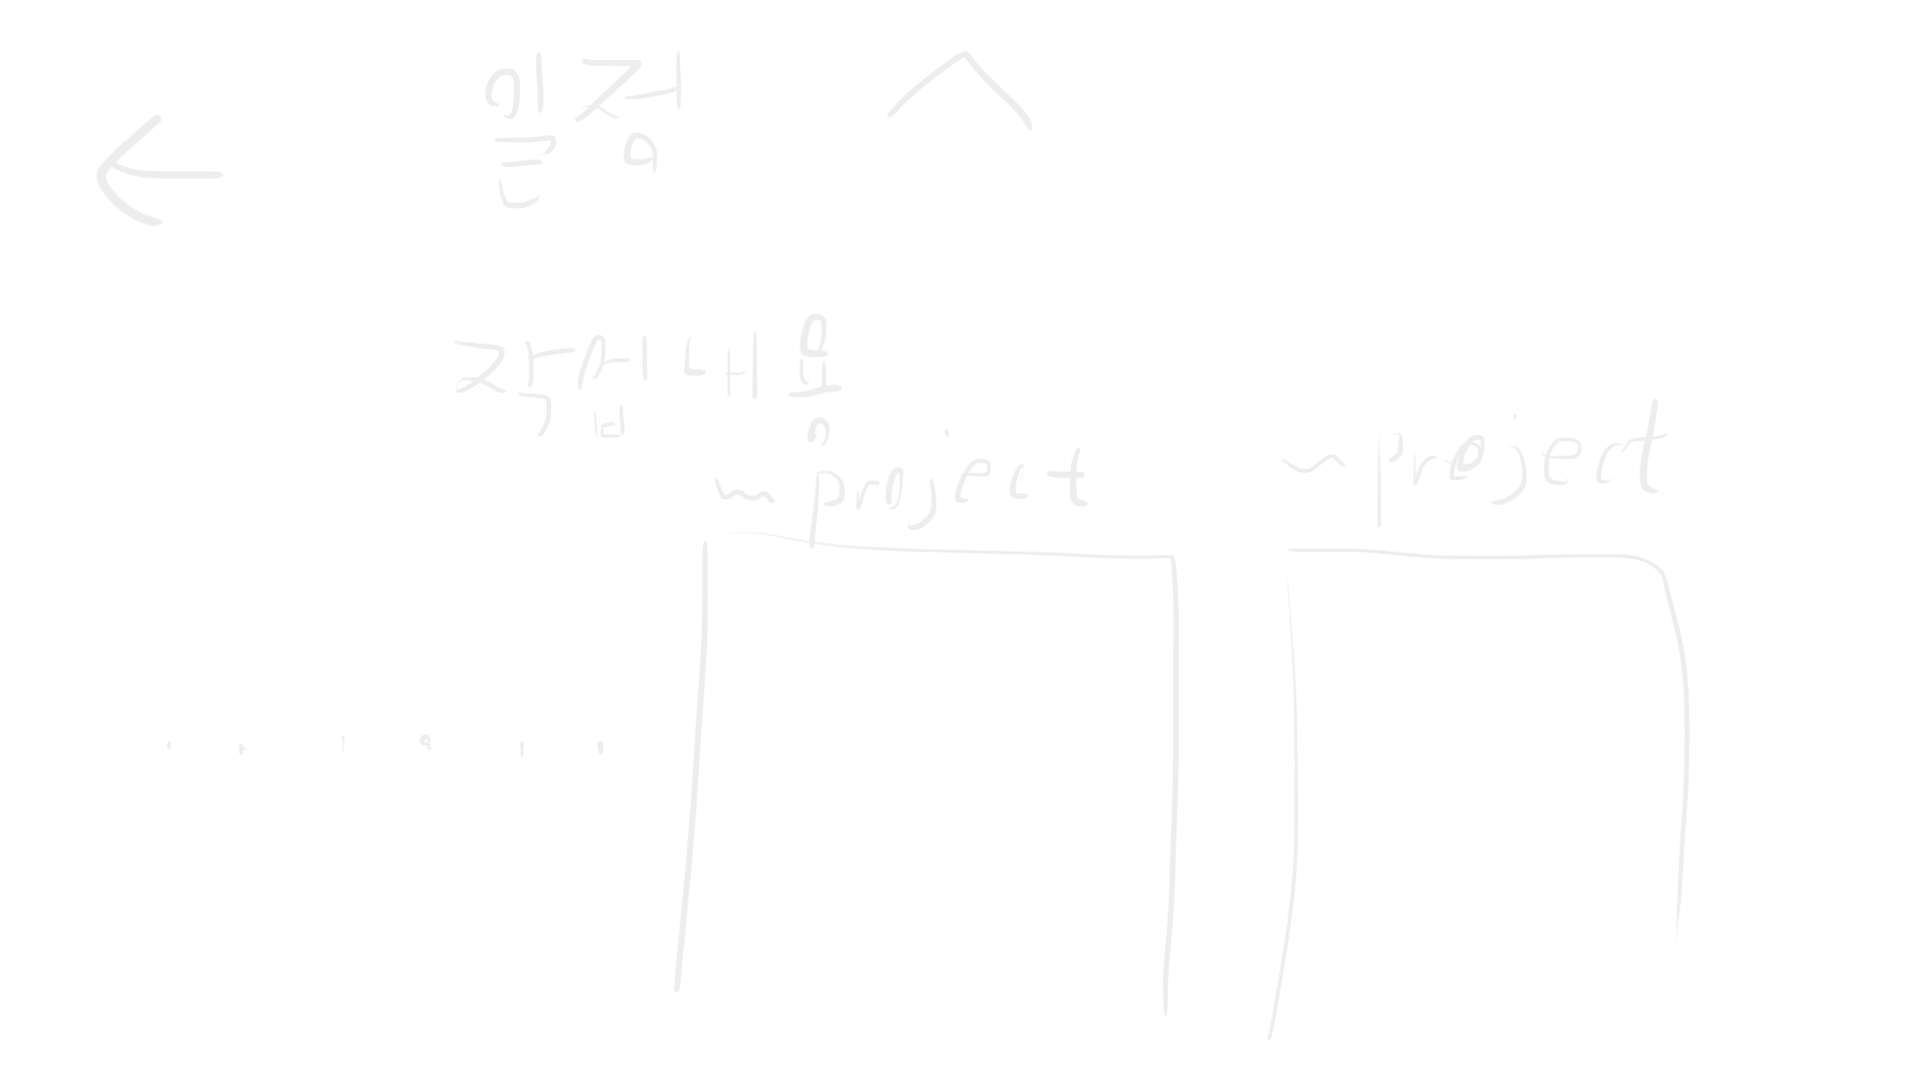 일정
작업내용
~project
~project